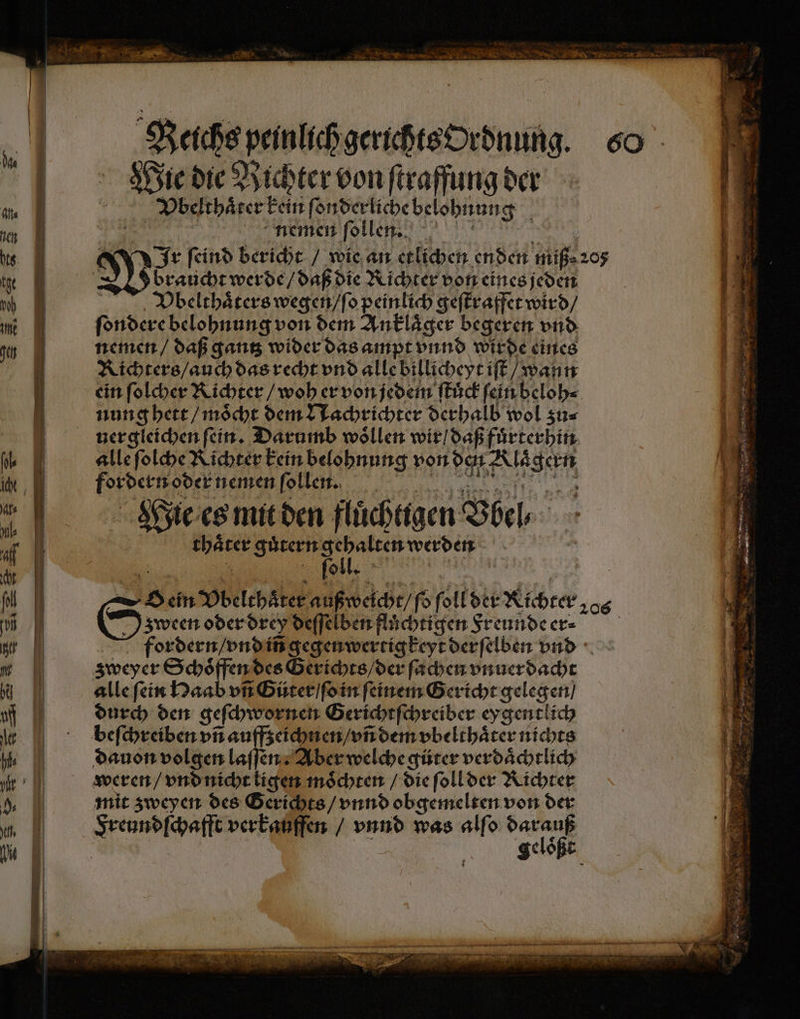 Reichs peinlich gerichts Ordnung. 60
Wie die Richter von ſtraffung der
Vbelthaͤter kein ſonderliche belohnung
nemen ſollen.
WIr ſeind bericht / wie an etlichen enden miß⸗ 205
braucht werde / daß die Richter von eines jeden
Vbelthaͤters wegen / ſo peinlich geſtraffet wird /
ſondere belohnung von dem Anklaͤger begeren vnd
nemen / daß gantz wider das ampt vnnd wirde eines
Richters / auch das recht vnd alle billicheyt iſt / wann
ein ſolcher Richter / woh er von jedem ſtuͤck ſein beloh⸗
nung hett / moͤcht dem Nachrichter derhalb wol zu⸗
uergleichen ſein. Darumb woͤllen wir / daß fuͤrterhin
alle ſolche Richter kein belohnung von den Klaͤgern
fordern oder nemen ſollen.
Wie es mit den fluͤchtigen Vbel⸗
thaͤter guͤtern gehalten werden
ſoll.
SO ein Vbelthaͤter außweicht / ſo ſoll der Richter 206
zween oder drey deſſelben fluͤchtigen Freunde er⸗
fordern / vnd in gegenwertigkeyt derſelben vnd
zweyer Schoͤffen des Gerichts / der ſachen vnuerdacht
alle ſein Haab vñ Guͤter / ſo in ſeinem Gericht gelegen /
durch den geſchwornen Gerichtſchreiber eygentlich
beſchreiben vñ auffzeichnen / vñ dem vbelthaͤter nichts
dauon volgen laſſen. Aber welche guͤter verdaͤchtlich
weren / vnd nicht ligen moͤchten / die ſoll der Richter
mit zweyen des Gerichts / vnnd obgemelten von der
Freundſchafft verkauffen / vnnd was alſo darauß
geloͤßt